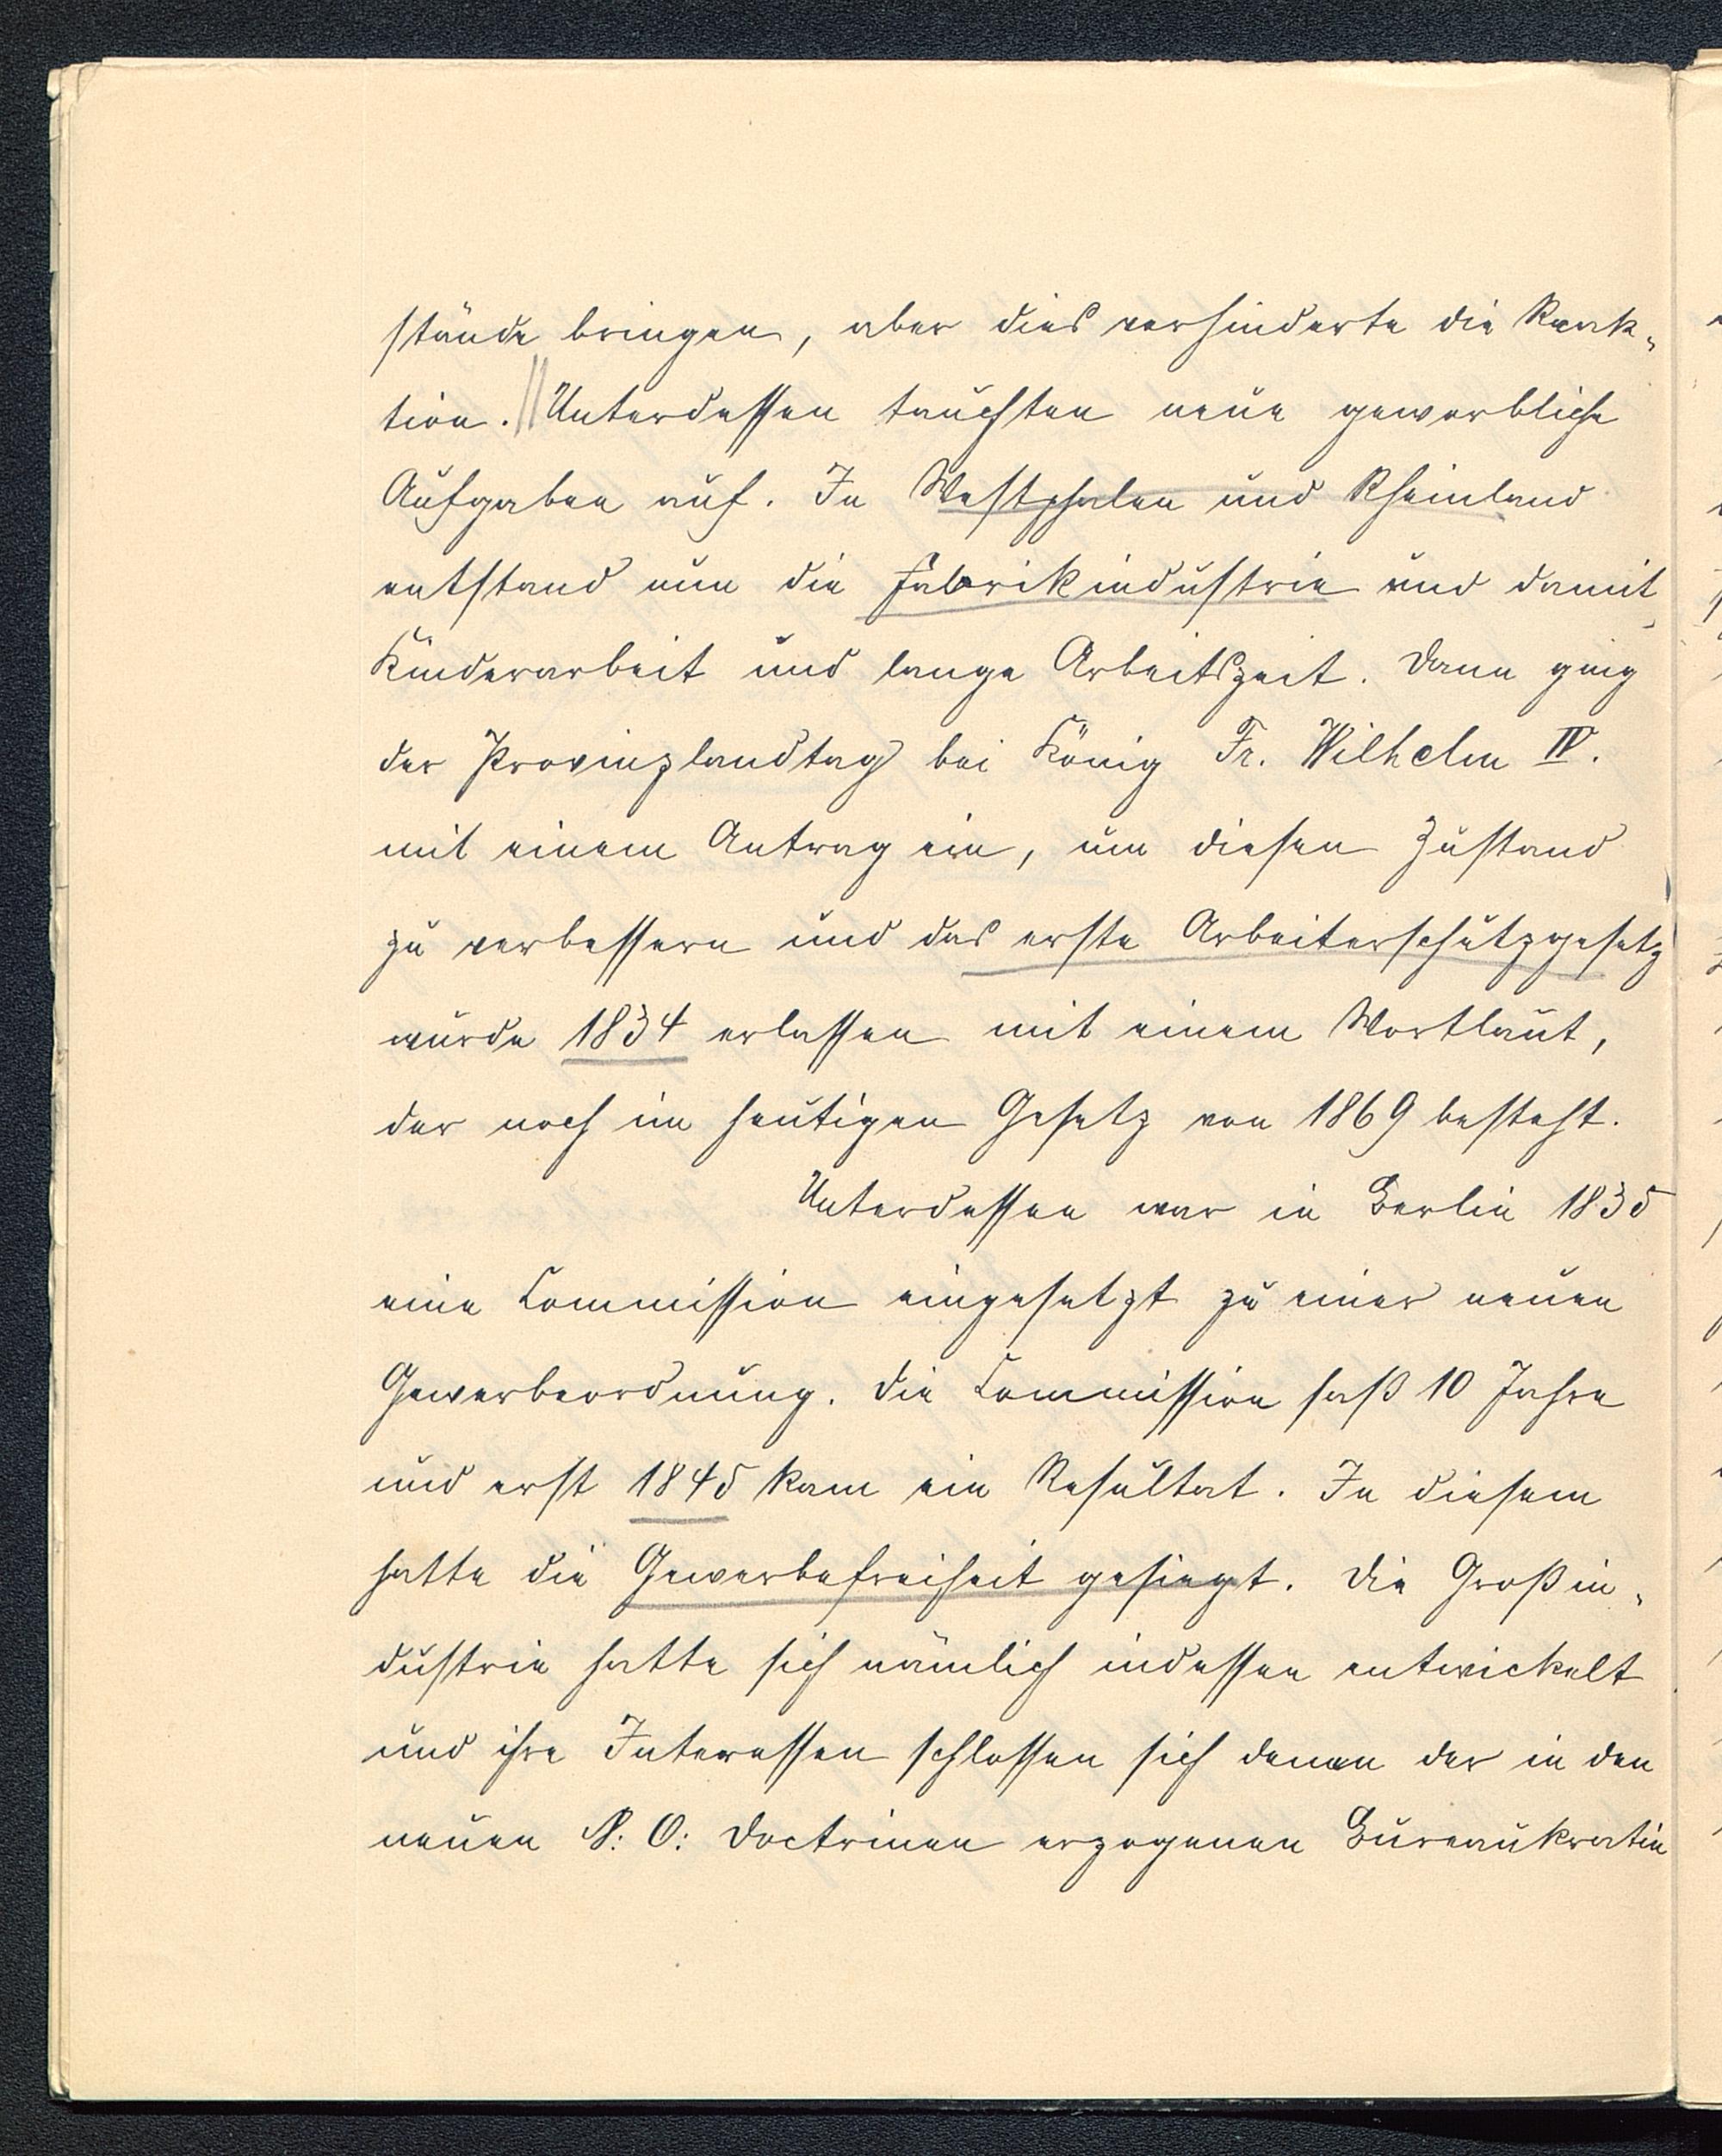 stände bringen, aber dies verhinderte die Reak-
tion. || Unterdessen tauchten neue gewerbliche
Aufgaben auf. In Westphalen und Rheinland
entstand nun die Fabrikindustrie und damit
Kinderarbeit und lange Arbeitszeit. Dann ging
der Provinzlandtag bei König Fr. Wilhelm IV.
mit einem Antrag ein, um diesen Zustand
zu verbessern und das erste Arbeiterschutzgesetz
wurde 1834 erlassen mit einem Wortlaut,
der noch im heutigen Gesetz von 1869 besteht.
Unterdessen war in Berlin 1835
eine Commission eingesetzt zu einer neuen
Gewerbeordnung. Die Commission saß 10 Jahre
und erst 1845 kam ein Resultat. In diesem
hatte die Gewerbefreiheit gesiegt. Die Großin-
dustrie hatte sich nämlich indessen entwickelt
und ihre Interessen schlossen sich denen der in den
neuen N: O: Doctrinen erzogenen Bureaukratie